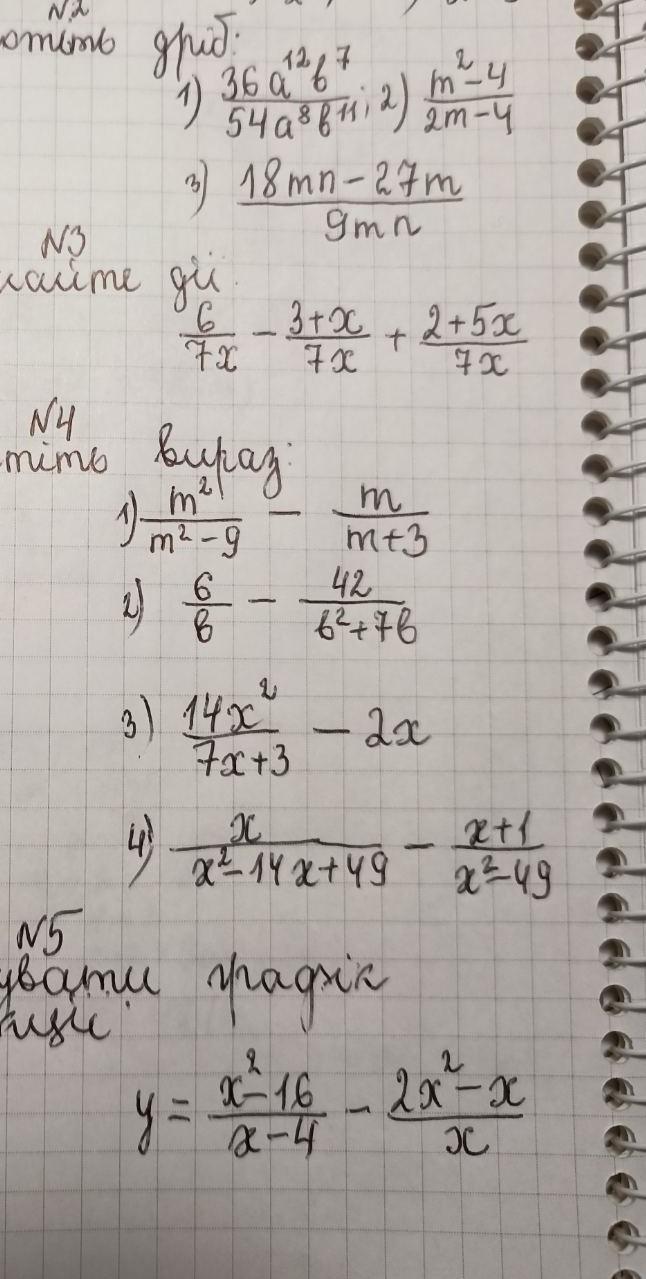 N2
дріб:
1) 36a¹²b⁷ / 54a⁸b¹¹; 2) m²-4 / 2m-4
3) 18mn-27m / 9mn
N3
дії
6/7x - 3+x/7x + 2+5x/7x
N4
вираз:
1) m²/m²-9 - m/m+3
2) 6/b - 42/b²+7b
3) 14x²/7x+3 - 2x
4) x/x²-14x+49 - x+1/x²-49
N5
графік
y = x²-16/x-4 - 2x²-x/x